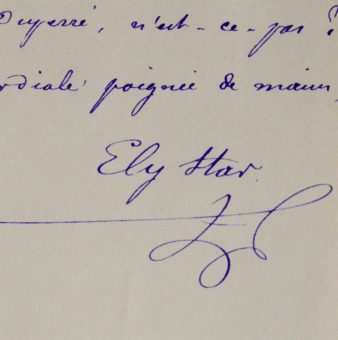 Duperré, n'est-ce-pas ?
rdiale poignée de main,
Ely Star.